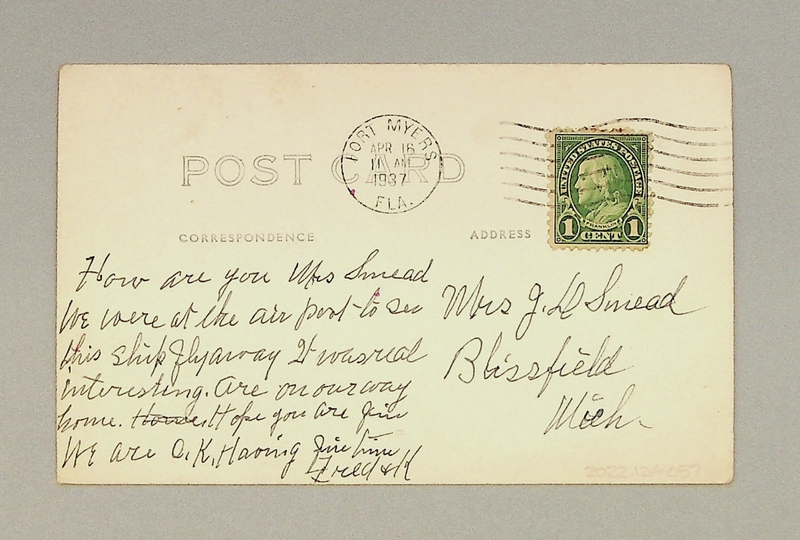 POST CARD
FORT MYERS
APR 16
11 AM
1937
FLA.
UNITED STATES POSTAGE
FRANKLIN
1 CENT 1
CORRESPONDENCE
ADDRESS
How are you Mrs Smead
We were at the air port to see
this ship fly away It was real
interesting. Are on our way
home. Home. Hope you are fine
We are O.K. Having fine time
Fred & K
Mrs J. D Smead
Blissfield
Mich.
2022.129.057